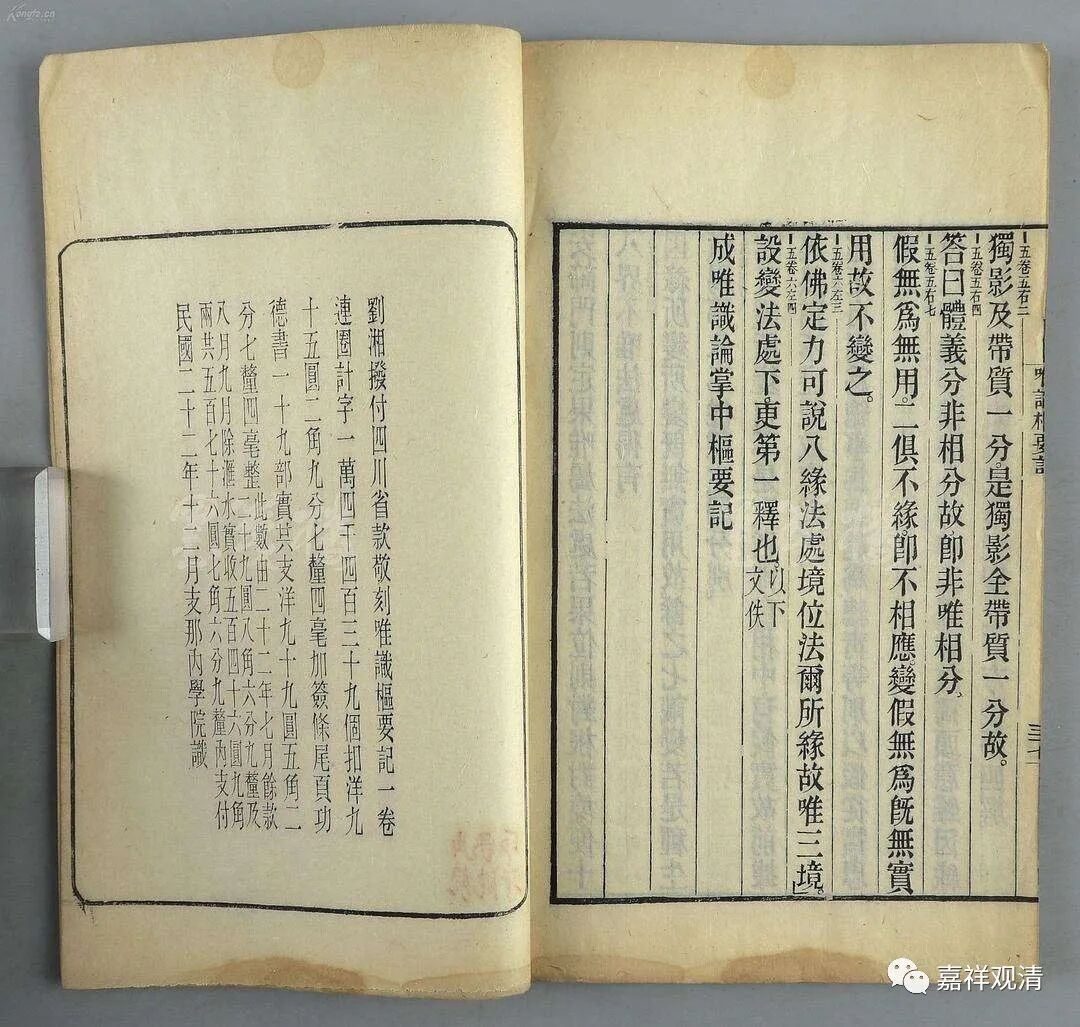 Kongfz.cn
五卷五右二
獨影及帶質一分是獨影全帶質一分故。
五卷五右四
答曰體義分非相分故卽非唯相分。
五卷五右七
假無爲無用。二俱不緣。卽不相應。變假無爲旣無實
用故不變之。
五卷六左三
依佛定力可說八緣法處境位法爾所緣故唯三境」。
五卷六左四
設變法處下。更第一釋也。以下文佚
成唯識論掌中樞要記
劉湘撥付四川省款敬刻唯識樞要記一卷
連圈計字一萬四千四百三十九個扣洋九
十五圓二角九分七釐四毫加簽條尾頁功
德書一十九部實共支洋九十九圓五角二
分七釐四毫整此數由二十二年七月餘款
二十九圓八角六分九釐及
八月九月除滙水實收五百四十六圓九角
兩共五百七十六圓七角六分九釐內支付
民國二十二年十二月支那內學院識
嘉祥观清